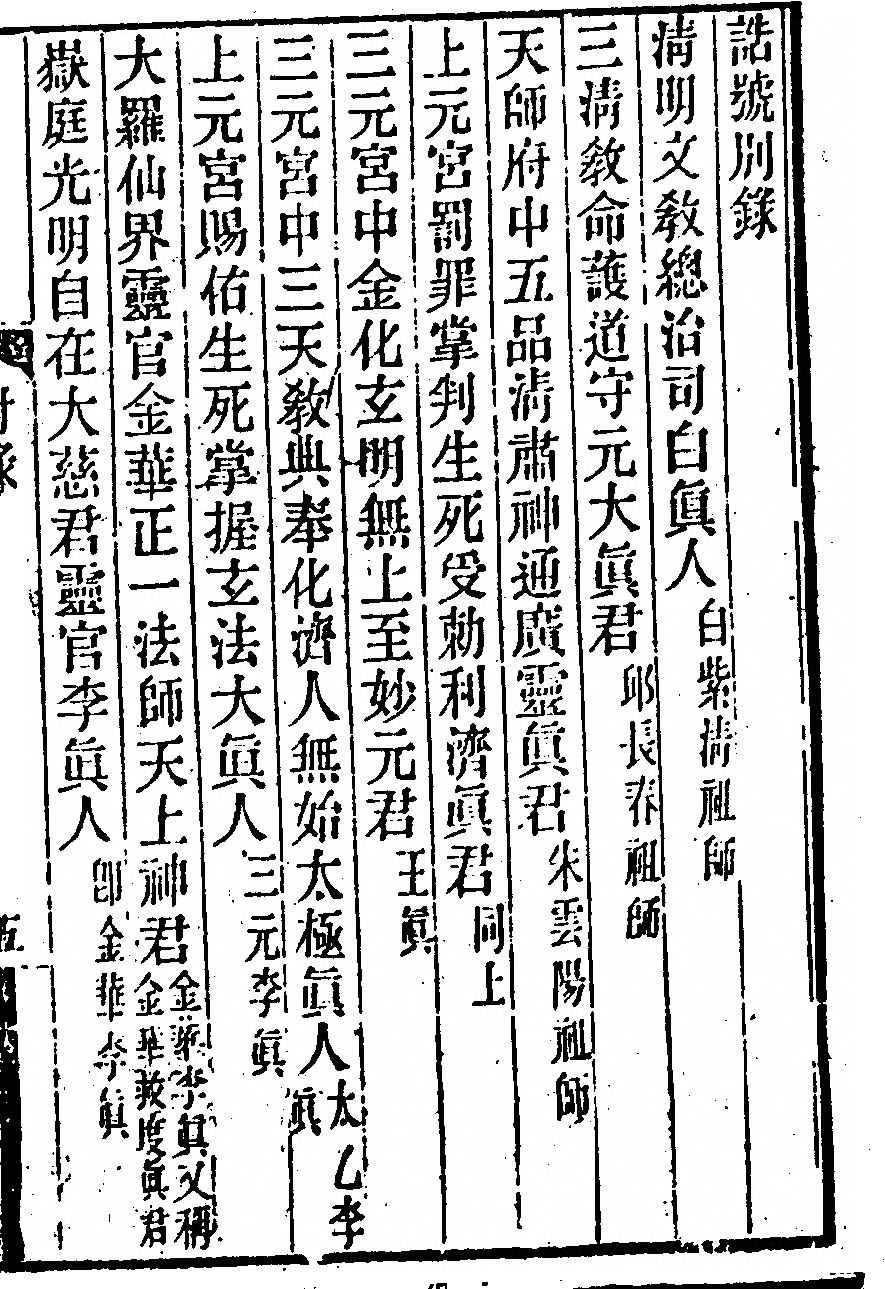 誥號別錄
淸明文敎總治司白眞人 白紫淸祖師
三淸敎命護道守元大眞君 邱長春祖師
天師府中五品淸肅神通廣靈眞君 朱雲陽祖師
上元宮罰罪掌判生死受勅利濟眞君 同上
三元宮中金化玄明無上至妙元君 王眞
三元宮中三天敎典奉化濟人無始太極眞人 太乙李眞
上元宮賜佑生死掌握玄法大眞人 三元李眞
大羅仙界靈官金華正一法師天上神君 金華李眞又稱金華救度眞君
嶽庭光明自在大慈君靈官李眞人 卽金華李眞
五